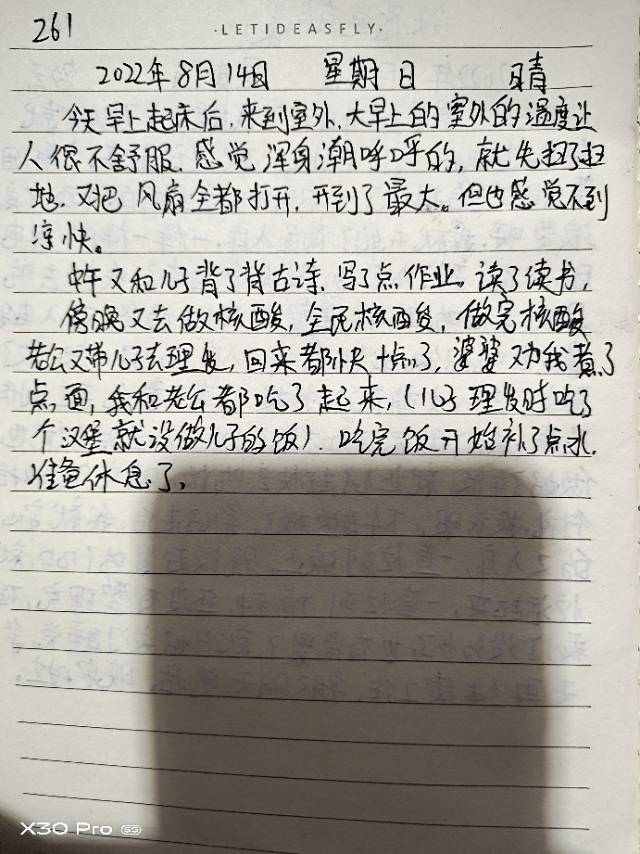 261
·LETIDEASFLY·
2022年8月14日 星期日 晴
今天早上起床后,来到室外,大早上的室外的温度让
人很不舒服,感觉浑身潮呼呼的,就先扫了扫
地,又把风扇全都打开,开到了最大。但也感觉不到
凉快。
中午又和儿子背了背古诗,写了点作业。读了读书,
傍晚又去做核酸,全民核酸,做完核酸
老公又带儿子去理发,回来都快十点了,婆婆又为我煮了
点面,我和老公都吃了起来,(儿子理发时吃了
个汉堡就没做儿子的饭)。吃完饭开始补了点水,
准备休息了。
X30 Pro 5G